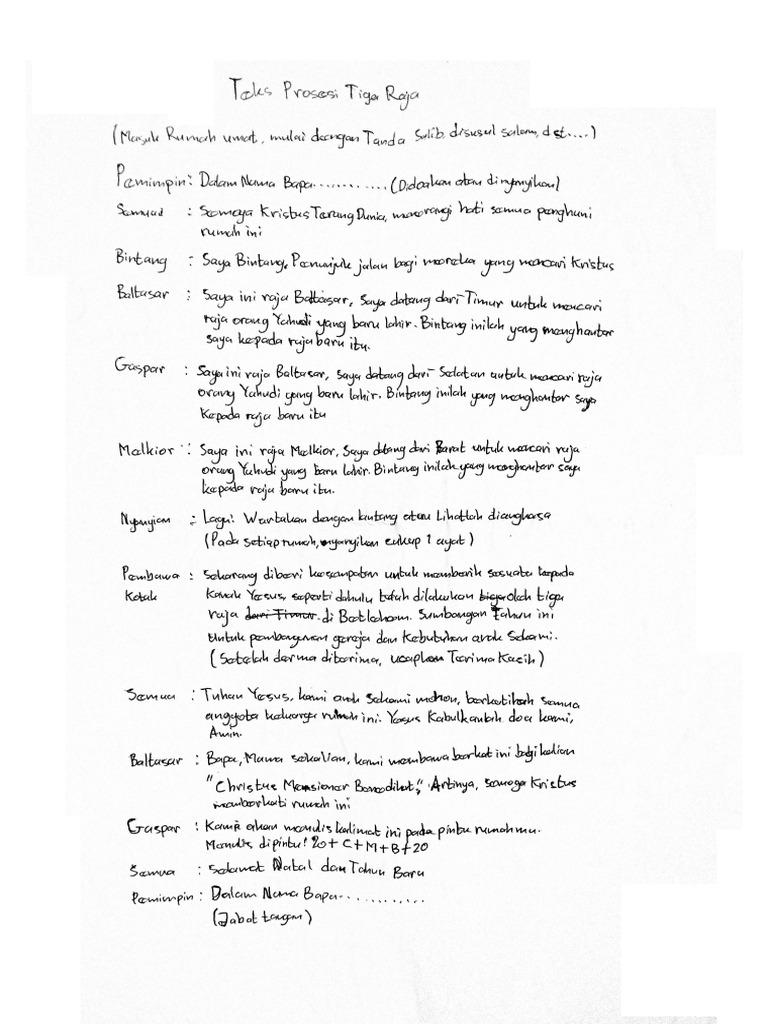 Teks Prosesi Tiga Raja
(Masuk Rumah umat, mulai dengan Tanda Salib, disusul salam, dst....)
Pemimpin: Dalam Nama Bapa............(Didoakan atau dinyanyikan)
Semua : Semoga Kristus Terang Dunia, menerangi hati semua penghuni
rumah ini
Bintang : Saya Bintang, Penunjuk jalan bagi mereka yang mencari Kristus
Baltasar : Saya ini raja Baltasar, Saya datang dari Timur untuk mencari
raja orang Yahudi yang baru lahir. Bintang inilah yang menghantar
saya kepada raja baru itu.
Gaspar : Saya ini raja Baltasar, saya datang dari Selatan untuk mencari raja
orang Yahudi yang baru lahir. Bintang inilah yang menghantar saya
kepada raja baru itu
Melkior : Saya ini raja Melkior, Saya datang dari Barat untuk mencari raja
orang Yahudi yang baru lahir. Bintang inilah yang menghantar saya
kepada raja baru itu.
Nyanyian : Lagu: Wartakan dengan lantang atau Lihatlah diangkasa
(Pada setiap rumah, nyanyikan cukup 1 ayat)
Pembawa : Sekarang diberi kesempatan untuk memberik sesuatu kepada
Kotak Kanak Yesus, seperti dahulu telah dilakukan tiga oleh tiga
raja dari Timur di Betlehem. Sumbangan Tahun ini
Untuk pembangunan gereja dan Kebutuhan anak Sekami.
(Setelah derma diterima, ucapkan Terima Kasih)
Semua : Tuhan Yesus, kami anak sekami mohon, berkatilah semua
anggota keluarga rumah ini. Yesus Kabulkanlah doa kami,
Amin.
Baltasar : Bapa, Mama sekalian, kami membawa berkat ini bagi kalian
"Christus Mensionar Benedikat", Artinya, semoga Kristus
memberkati rumah ini
Gaspar : Kami akan menulis kalimat ini pada pintu rumahmu.
Menulis dipintu! 20+C+M+B+20
Semua : Selamat Natal dan Tahun Baru
Pemimpin : Dalam Nama Bapa............
(Jabat tangan)